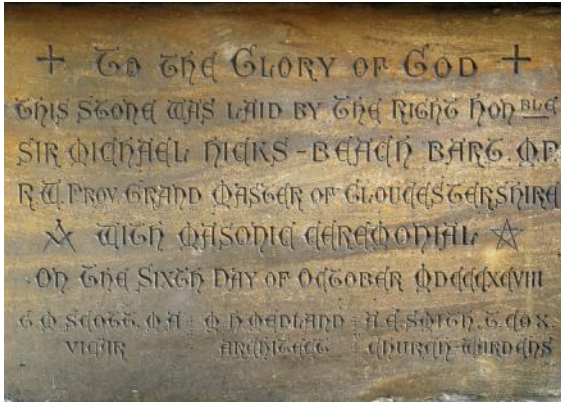 + To the Glory of God +
This Stone was laid by the Right Hon BLE
Sir Michael Hicks-Beach Bart. M.P.
R.W. Prov Grand Master of Gloucestershire
with Masonic Ceremonial
On the Sixth Day of October MDCCCXCVIII
C. O. Scott. M A : M H Medland : A. E. Smith. T. Cox.
Vicar Architect Church-Wardens